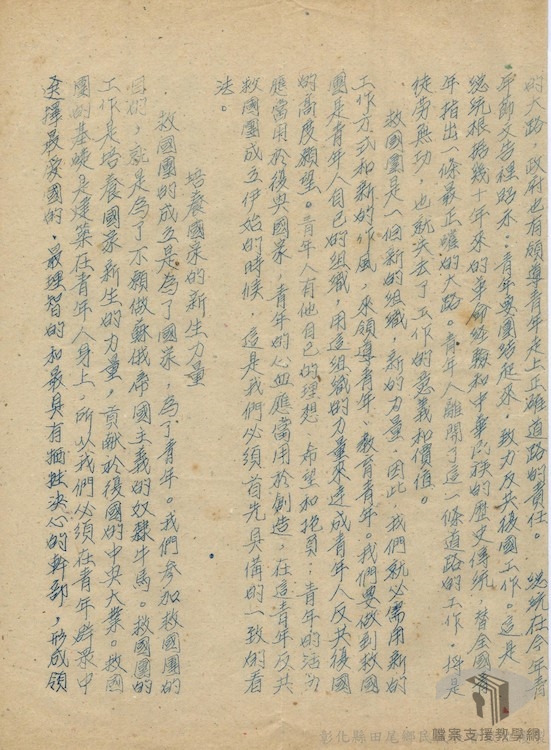 的大路，政府也有領導青年走上正確道路的責任。　總統在今年青
年節文告裡昭示：青年要團結起來，致力反共復國工作。這是
總統根據幾十年來的革命經驗和中華民族的歷史傳統，替全國青
年指出一條最正確的大路。青年人離開了這一條道路的工作，將是
徒勞無功，也就失去了工作的意義和價值。
救國團是一個新的組織，新的力量，因此，我們就必需用新的
工作方式和新的作風，來領導青年、教育青年。我們要做到救國
團是青年人自己的組織，用這組織的力量來達成青年人反共復國
的高度願望。青年人有他自己的理想、希望和抱負；青年的活力
應當用於復興國家，青年的心血應當用於創造，在這青年反共
救國團成立伊始的時候，這是我們必須首先具備的一致的看
法。
培養國家的新生力量
救國團的成立是為了國家，為了青年。我們參加救國團的
目的，就是為了不願做蘇俄帝國主義的奴隸牛馬。救國團的
工作是培養國家新生的力量，貢獻於復國的中央大業。救國
團的基礎是建築在青年人身上，所以我們必須在青年群眾中
選擇最愛國的，最理智的和最具有犧牲決心的幹部，形成領
彰化縣田尾鄉
檔案支援教學網